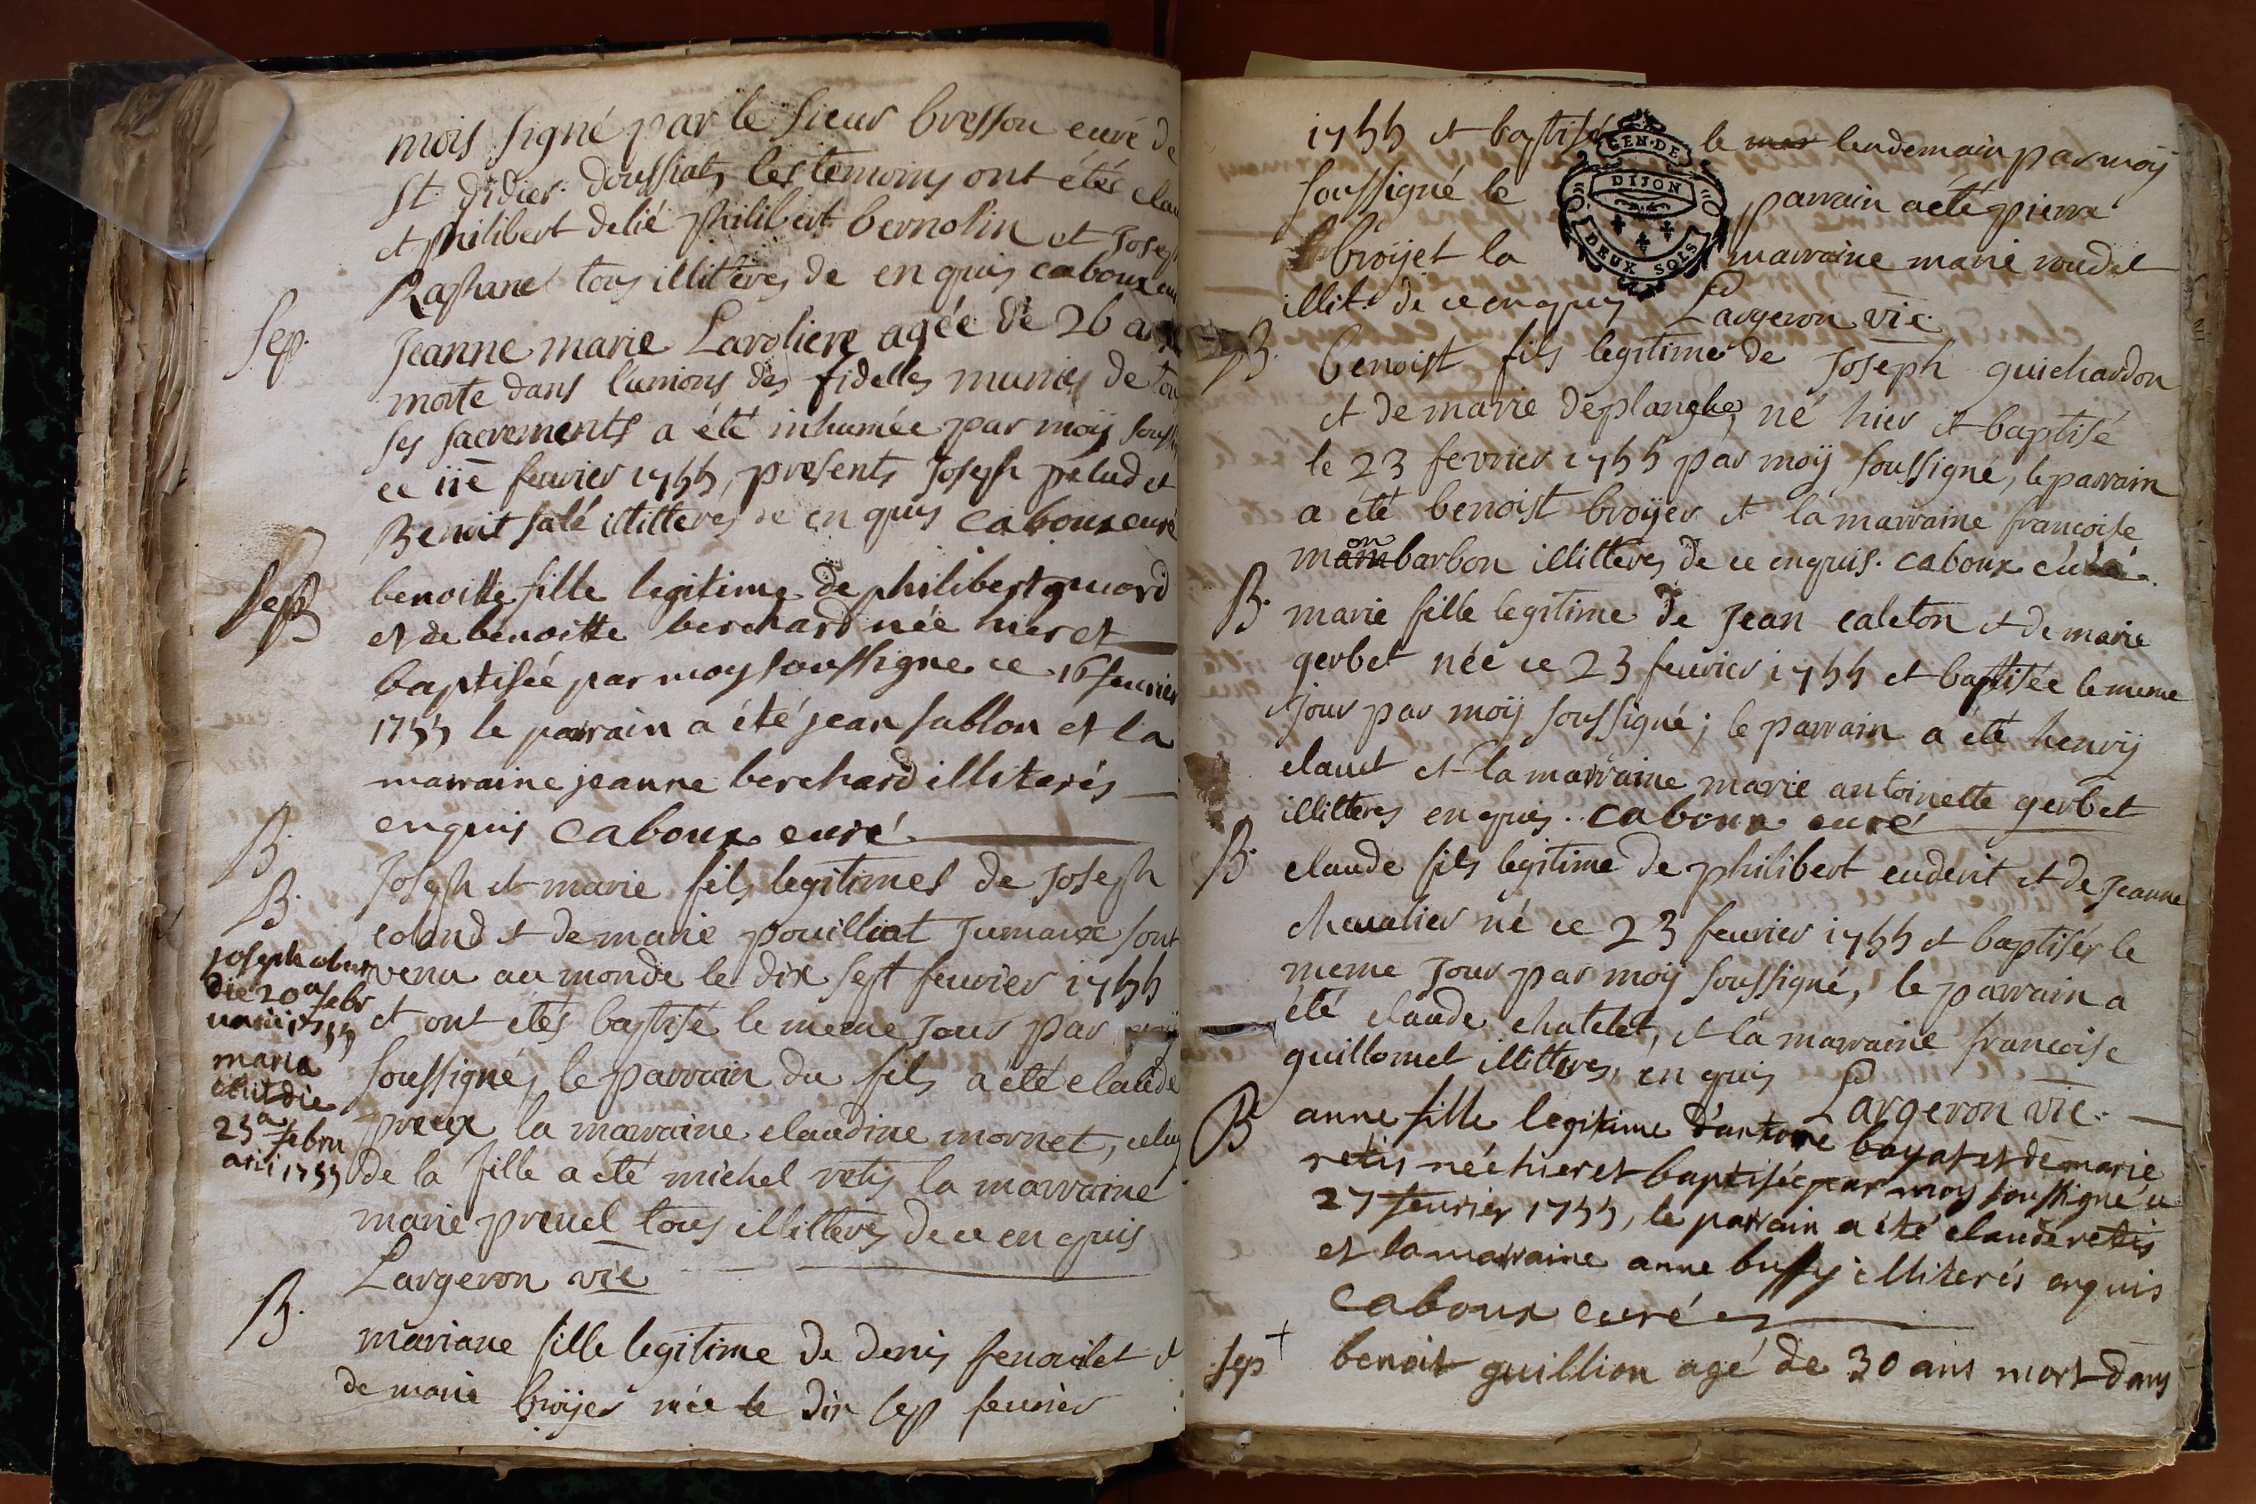 mois signé par le sieur bresson curé de
st. didier doussiat, les temoins ont étés clau
et philibert delié philibert bernolin et Josep
tous illitères de ce enquis caboux cu
Sep. Jeanne marie Laroliere agée de 26 ans
morte dans l'unions des fidelles munies de tou
ses sacrements a été inhumée par moÿ souss
ce 11e feuvrier 1755, presents Joseph pelud et
Benoit salé illitteres ce enquis caboux curé
Sep benoitte fille legitime de philibert guiord
et de benoitte berchard née hier et
baptisée par moy soussigne ce 16 feurier
1755 le parrain a été jean sablon et la
marraine jeanne berchard illiterés
enquis caboux curé
B. Joseph et marie fils legitimes de Joseph
B. coland et de marie pouilliat Jumaux sont
venu au monde le dix sept feuvrier 1755
et ont etés baptisé le meme Jour par moÿ
soussigné, le parrain du fils a été claude
preux la marraine claudine mornet, celuy
de la fille a été michel retis la marraine
marie preuel tous illitteres de ce enquis
Largeron vic
joseph obiit
die 20a febr
uarii 1755
maria
obiit die
23a febru
arii 1755
B. mariane fille legitime de denis fenouilet et
de marie broÿer née le dix sep feurier
1755 et baptisée le lendemain par moÿ
soussigné le parrain a été pierre
broÿet la marraine marie roudet
illit. de ce enquis Largeron vic.
GEN. DE
DIJON
DEUX SOLS
B. benoist fils legitime de Joseph guichardon
et de marie deplanche, né hier et baptisé
le 23 fevrier 1755 par moÿ soussigné, le parrain
a été benoist broÿer et la marraine francoise
monbarbon illittéres de ce enquis. caboux curé
B. marie fille legitime de Jean caleton et de marie
gerbet née ce 23 feurier 1755 et baptisée le meme
Jour par moÿ soussigné; le parrain a été henrÿ
claud et la marraine marie antoinette gerbet
illitteres enquis. caboux curé
B. claude fils legitime de philibert euderit et de Jeanne
cheualier né ce 23 feurier 1755 et baptisés le
meme Jour par moÿ soussigné, le parrain a
été claude chatelet, et la marraine francoise
guillomet illitteres, enquis Largeron vic.
B anne fille legitime d'antoine bayat et de marie
retis née hier et baptisée par moy soussigné ce
27 feurier 1755, le parrain a été claude retis
et la marraine anne bussy illiterés enquis
caboux curé
Sep + benoit guillion agé de 30 ans mort dans